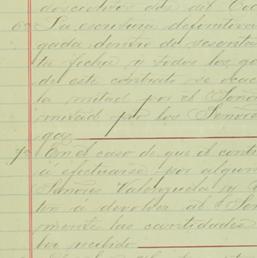 doscientos dos del Cód
6ª La escritura definitiva
gada dentro de sesenta
ta fecha y todos los ga
de este contrato se
la mitad por el Señor
mitad por los Señores
gas.
7ª En el caso de que el cont
a efectuarse por algun
Señores Valenzuela y
ter á devolver al S
mente las cantidades
ber recibido